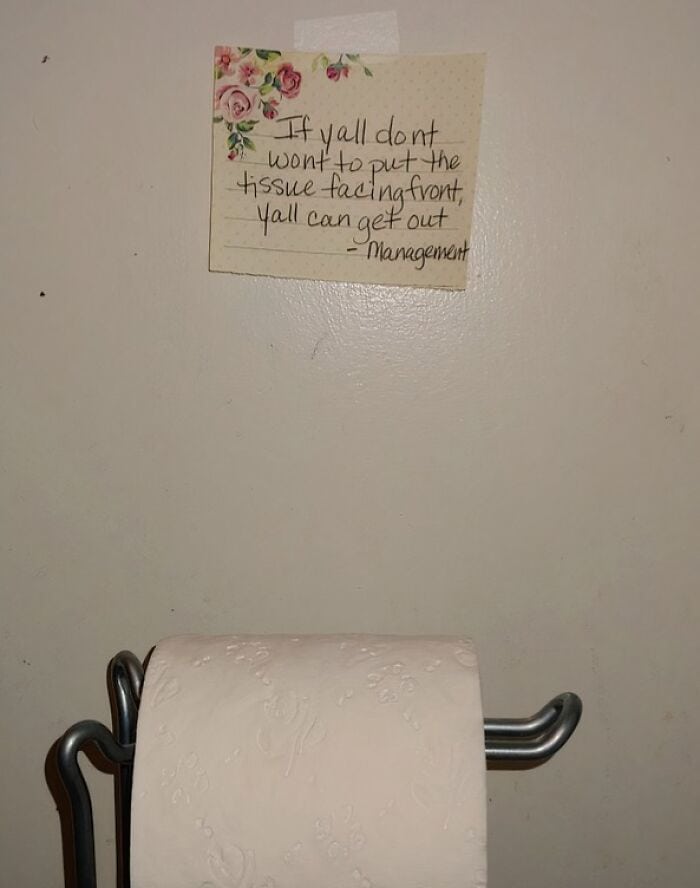 If yall dont
wont to put the
tissue facing front,
yall can get out
- Management